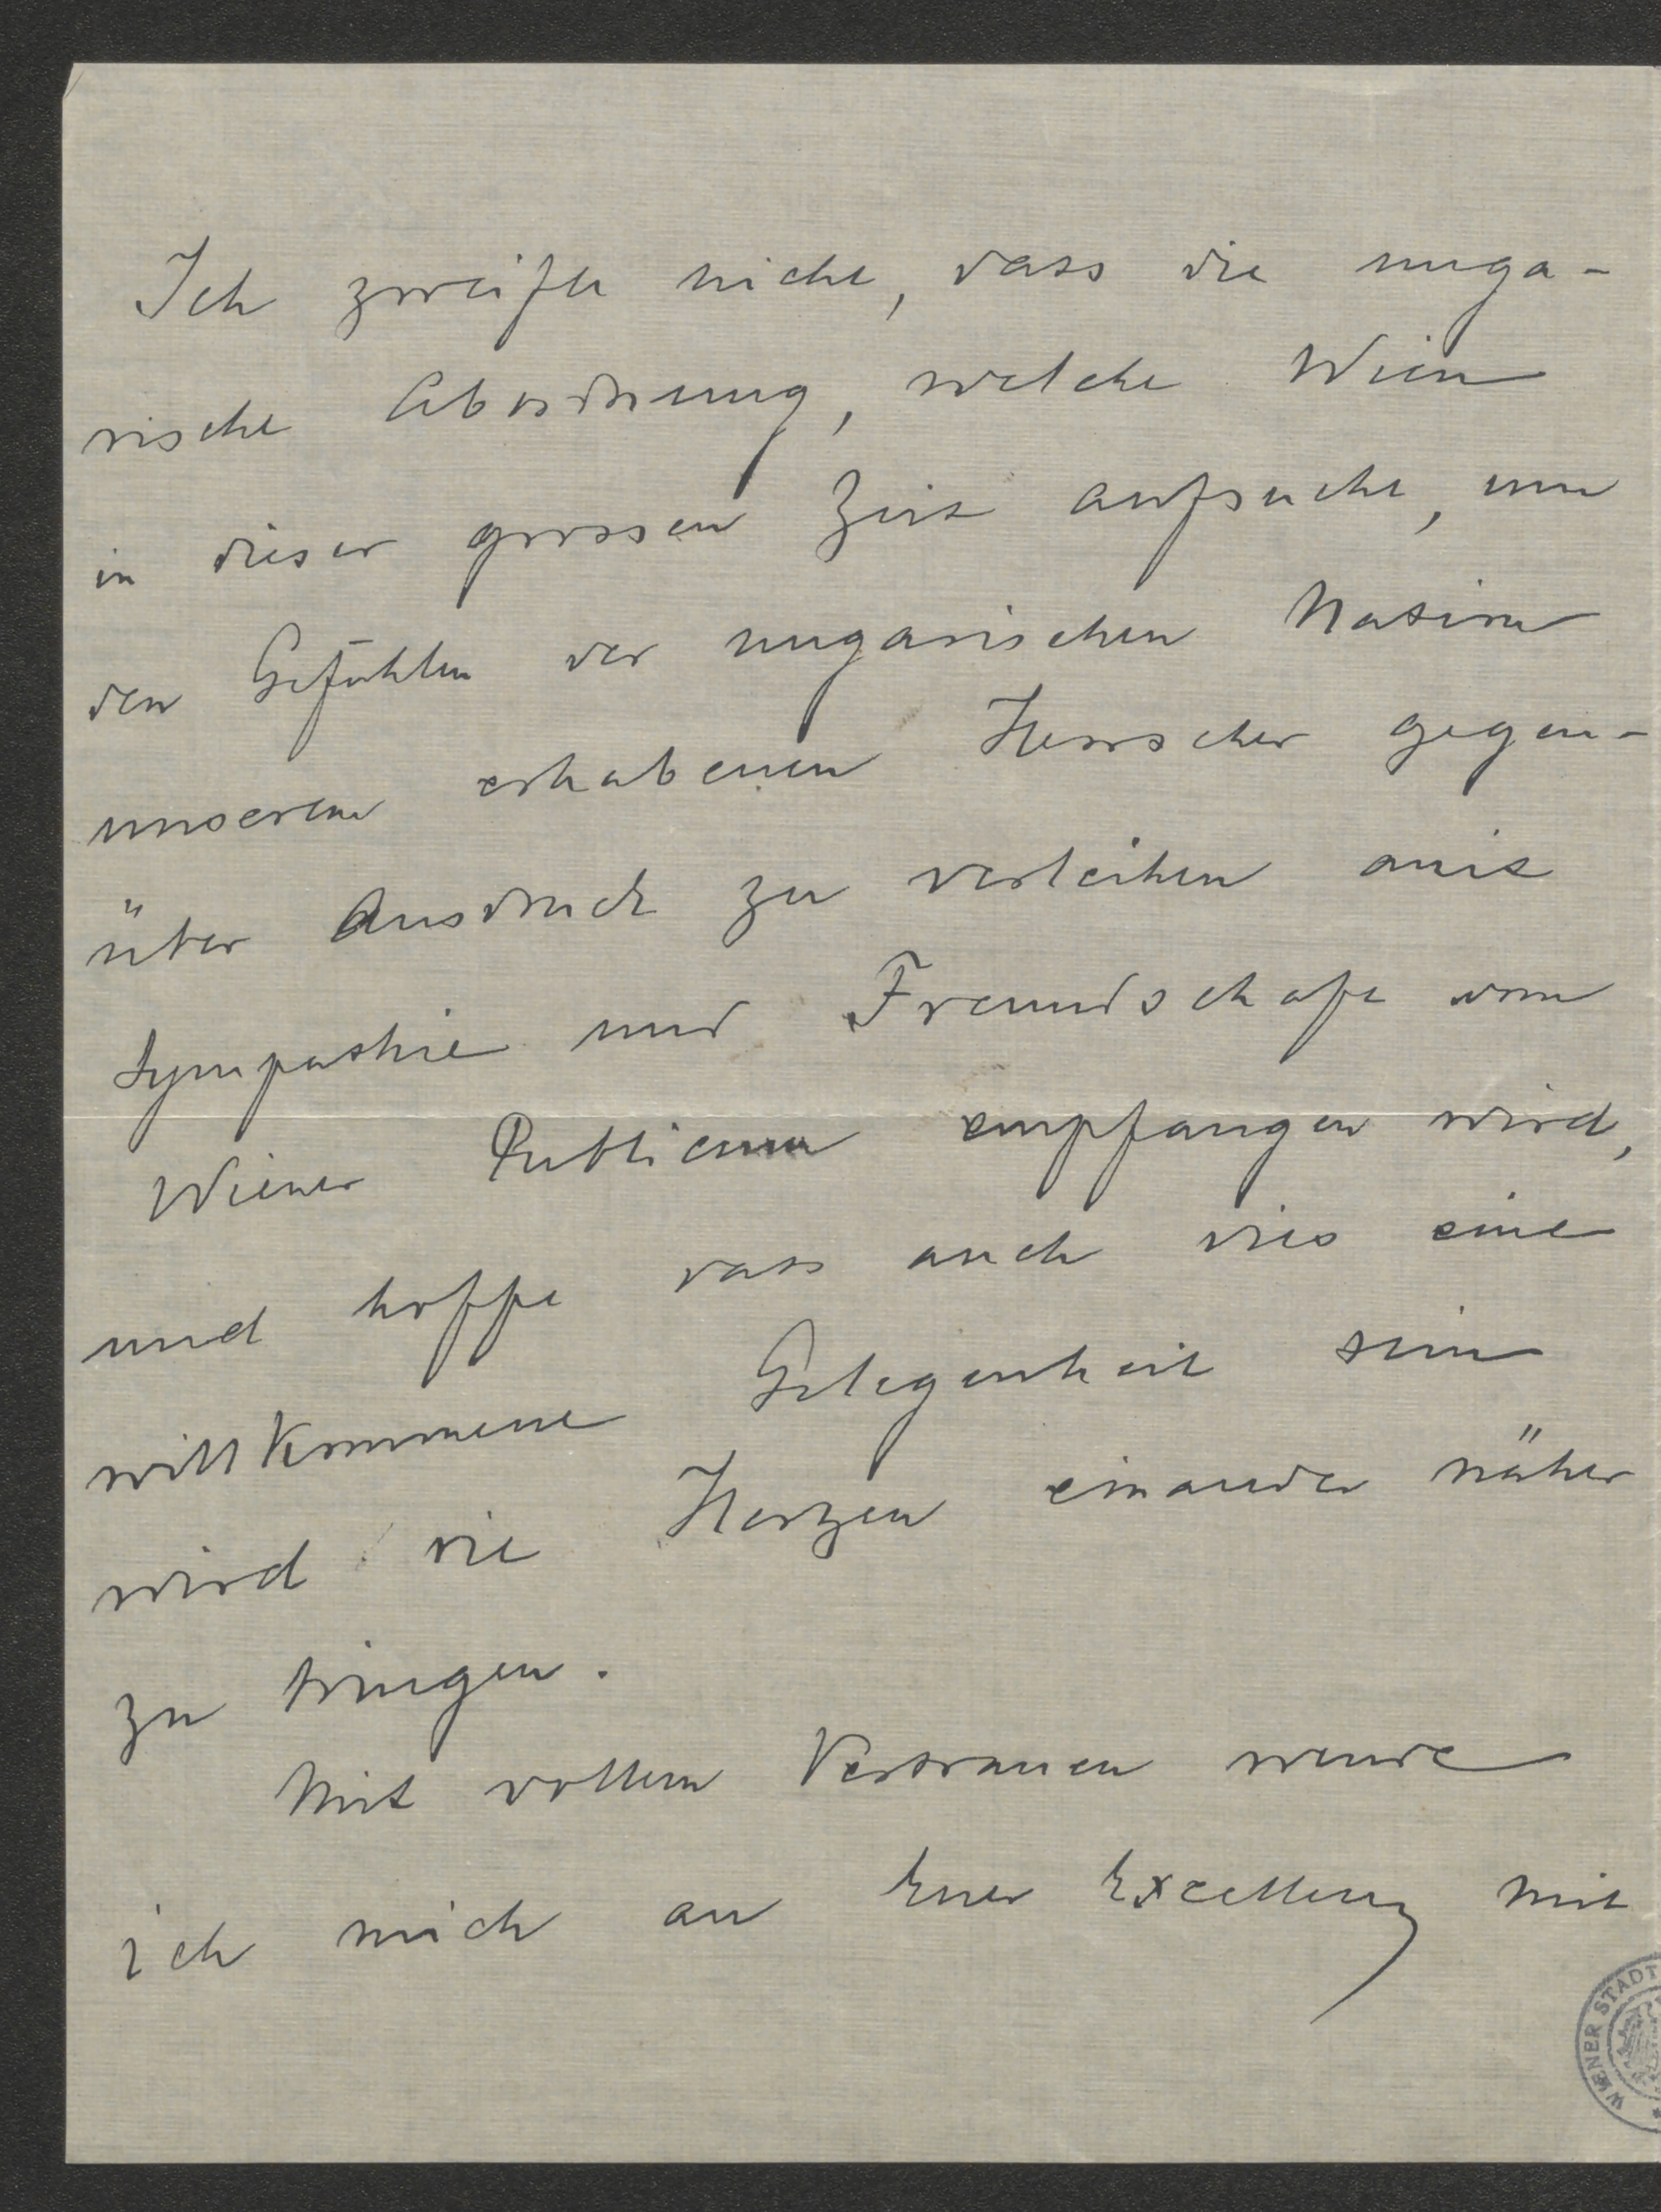 Ich zweifle nicht, dass die unga-
rische Abordnung, welche Wien
in dieser grossen Zeit aufsucht, um
den Gefühlen der ungarischen Nation
unserem erhabenen Herrscher gegen-
über Ausdruck zu verleihen mit
Sympathie und Freundschaft vom
Wiener Publicum empfangen wird,
und hoffe dass auch dies eine
willkommene Gelegenheit sein
wird die Herzen einander näher
zu bringen.
Mit vollem Vertrauen wende
ich mich an Euer Excellenz mit
WIENER STADT